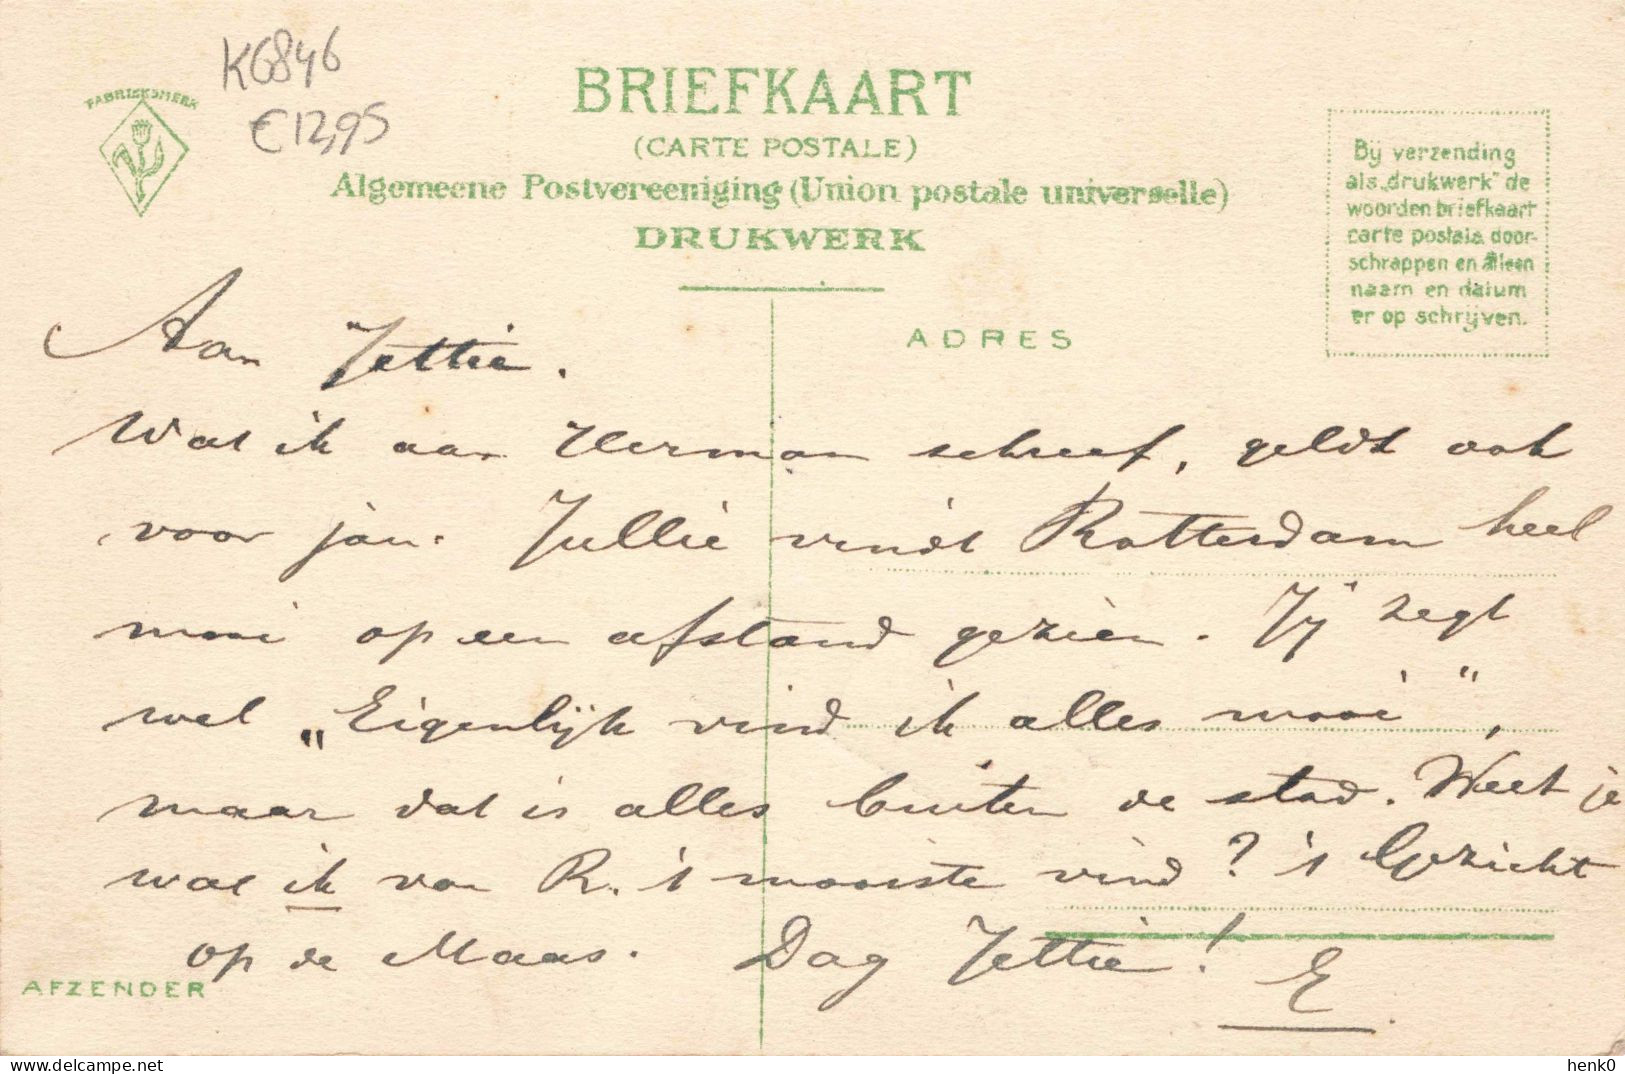 K6846
€12,95
FABRIEKSMERK
BRIEFKAART
(CARTE POSTALE)
Algemeene Postvereeniging (Union postale universelle)
DRUKWERK
Bij verzending
als „drukwerk" de
woorden briefkaart
carte postale door-
schrappen en alleen
naam en datum
er op schrijven.
ADRES
Aan Jettie.
Wat ik aan Herman schreef, geldt ook
voor jou. Jullie vindt Rotterdam heel
mooi op een afstand gezien. Jij zegt
wel „Eigenlijk vind ik alles mooi",
maar dat is alles buiten de stad. Weet je
wat ik van R. 't mooiste vind? 't Gezicht
op de Maas. Dag Jettie!
E
AFZENDER
henk0